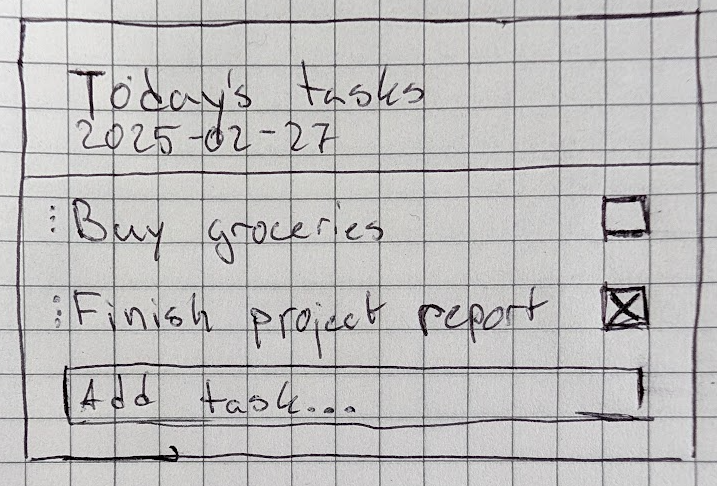 Today's tasks
2025-02-27
Buy groceries
Finish project report
Add task...